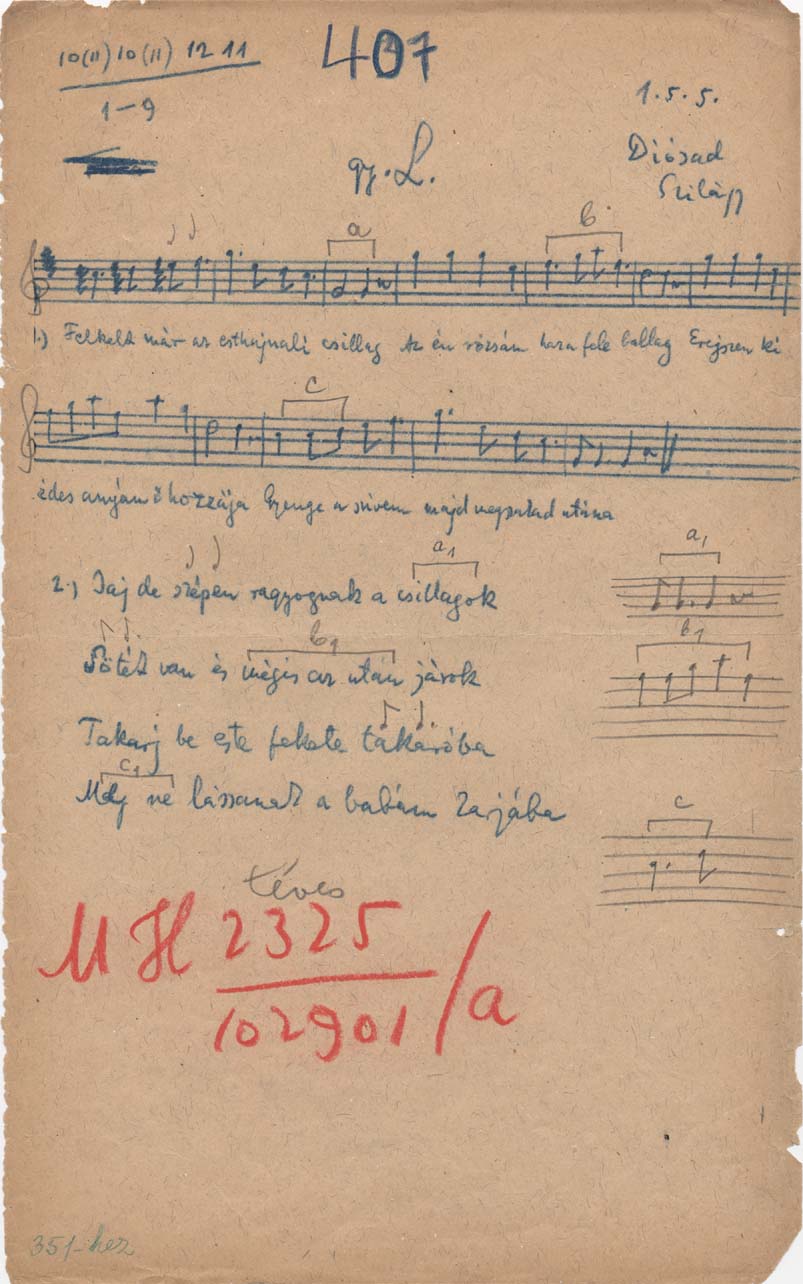 10(11) 10(11) 12 11
1-9
407
gy. L.
1.5.5.
Diósad
Szilágy
a
b
1.) Felkelt már az esthajnali csillag Az én rózsám haza fele ballag Eregszen ki
c
édes anyám ő hozzája Gyenge a szivem majd megszakad utána
a1
2.) Jaj de szépen ragyognak a csillagok
b1
Sötét van és mégis az után járok
Takarj be este fekete takaróba
c1
Még né lássanak a babám karjába
a1
b1
c
téves
MH 2325
102901 /a
351-hez